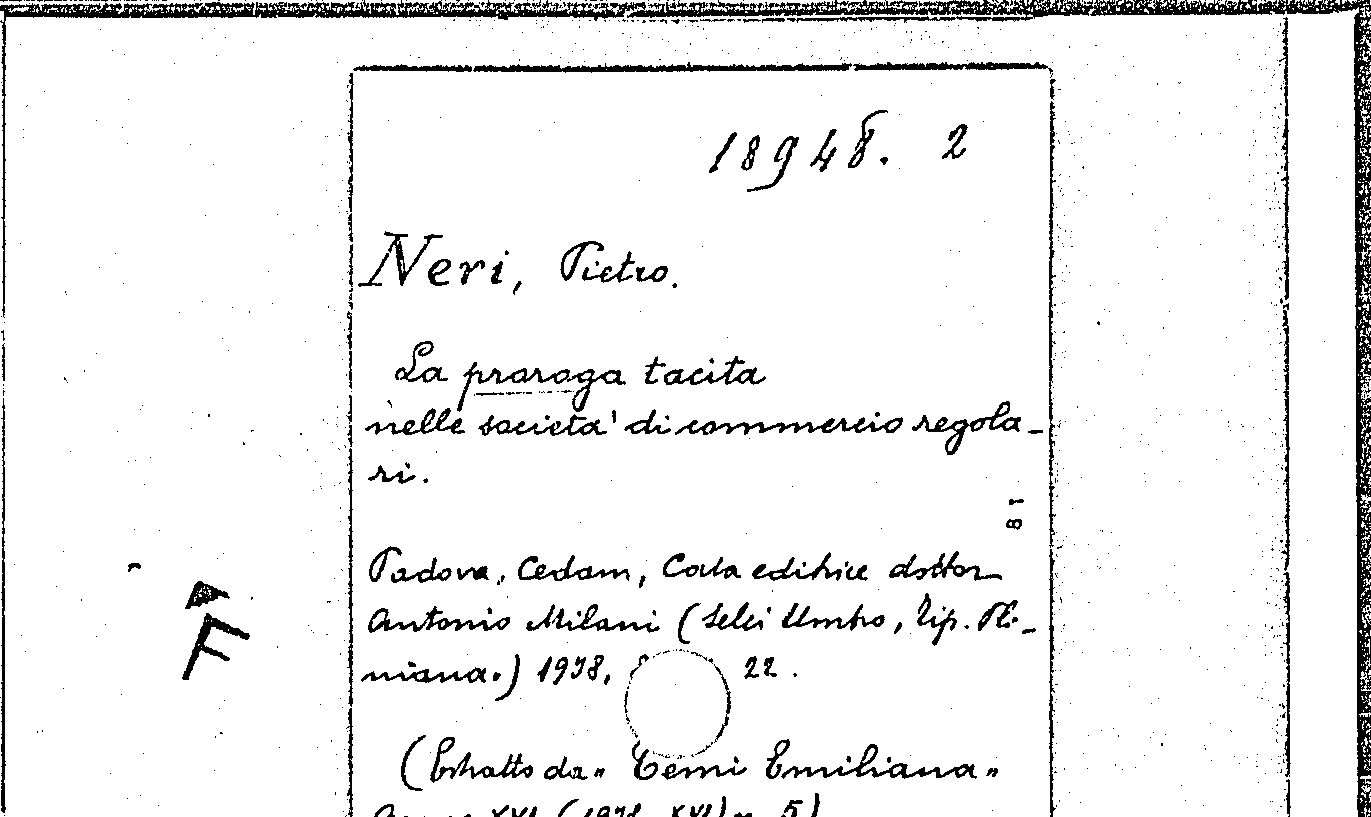 18948. 2
Neri, Pietro.
La proroga tacita
nelle società di commercio regola-
ri.
81
Padova, Cedam, Casa editrice dottor
Antonio Milani (Selci Umbro, Tip. Pli-
niana.) 1938, 22.
F
(Estratto da "Temi Emiliana"
XVI (1938, XVI) n. 5)